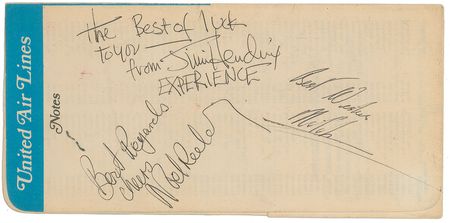 United Air Lines
Notes
the Best of luck
to you
from Jimi Hendrix
EXPERIENCE
Best Wishes
Mitch
Best Regards
cheers
Noel Redding